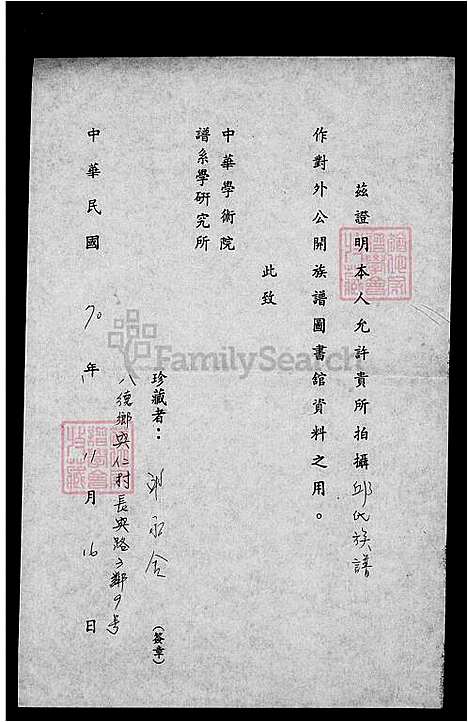 茲證明本人允許貴所拍攝邱氏族譜
作對外公開族譜圖書館資料之用。
此致
中華學術院
譜系學研究所
珍藏者：邱永合（簽章）
八德鄉興仁村長興路3鄰9号
中華民國70年11月16日
FamilySearch